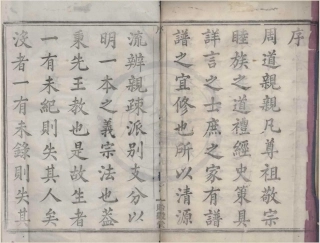 序
周道親親凡尊祖敬宗
睦族之道禮經史策具
詳言之士庶之家有譜
譜之宜修也所以清源
流辨親疎派別支分以
明一本之義宗法也蓋
東先王教也是故生者
一有未紀則失其人矣
沒者一有未錄則失其